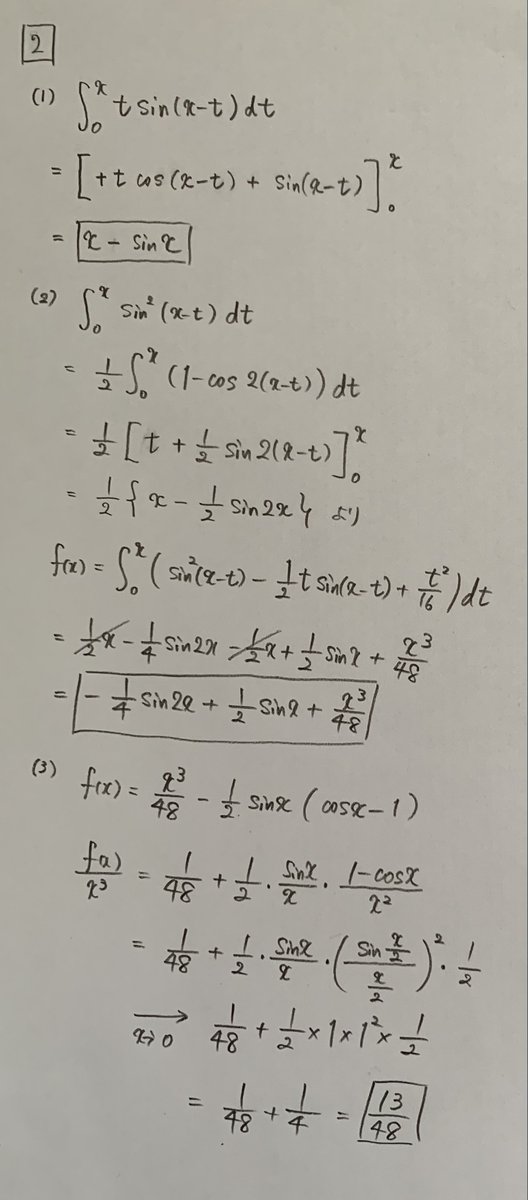 2
(1) ∫₀ˣ t sin(x-t) dt
= [+t cos(x-t) + sin(x-t)]₀ˣ
= x - sin x
(2) ∫₀ˣ sin²(x-t) dt
= 1/2 ∫₀ˣ (1-cos 2(x-t)) dt
= 1/2 [t + 1/2 sin 2(x-t)]₀ˣ
= 1/2 {x - 1/2 sin 2x} より
f(x) = ∫₀ˣ (sin²(x-t) - 1/2 t sin(x-t) + t²/16) dt
= 1/2 x - 1/4 sin 2x - 1/2 x + 1/2 sin x + x³/48
= - 1/4 sin 2x + 1/2 sin x + x³/48
(3) f(x) = x³/48 - 1/2 sin x (cos x - 1)
f(x)/x³ = 1/48 + 1/2 · sin x/x · (1-cos x)/x²
= 1/48 + 1/2 · sin x/x · (sin x/2 / x/2)² · 1/2
→ x→0 1/48 + 1/2 × 1 × 1² × 1/2
= 1/48 + 1/4 = 13/48